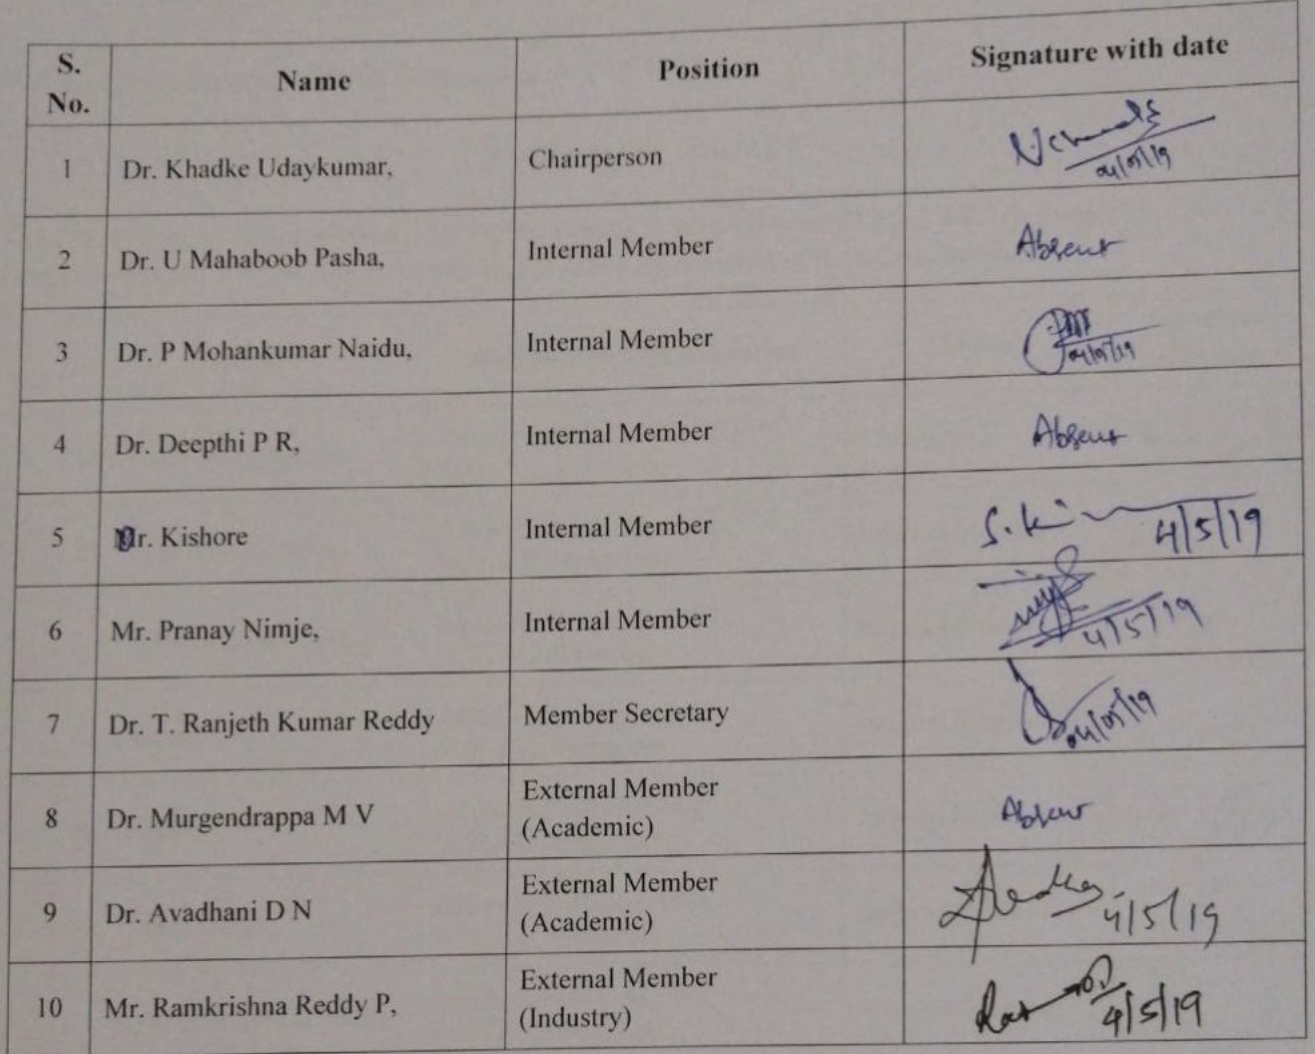 S. No. Name Position Signature with date
1 Dr. Khadke Udaykumar, Chairperson
04/05/19
2 Dr. U Mahaboob Pasha, Internal Member Absent
3 Dr. P Mohankumar Naidu, Internal Member
04/05/19
4 Dr. Deepthi P R, Internal Member Absent
5 Dr. Kishore Internal Member S. Ki 4/5/19
6 Mr. Pranay Nimje, Internal Member 4/5/19
7 Dr. T. Ranjeth Kumar Reddy Member Secretary 04/05/19
8 Dr. Murgendrappa M V External Member
(Academic) Absent
9 Dr. Avadhani D N External Member
(Academic) 4/5/19
10 Mr. Ramkrishna Reddy P, External Member
(Industry) 4/5/19